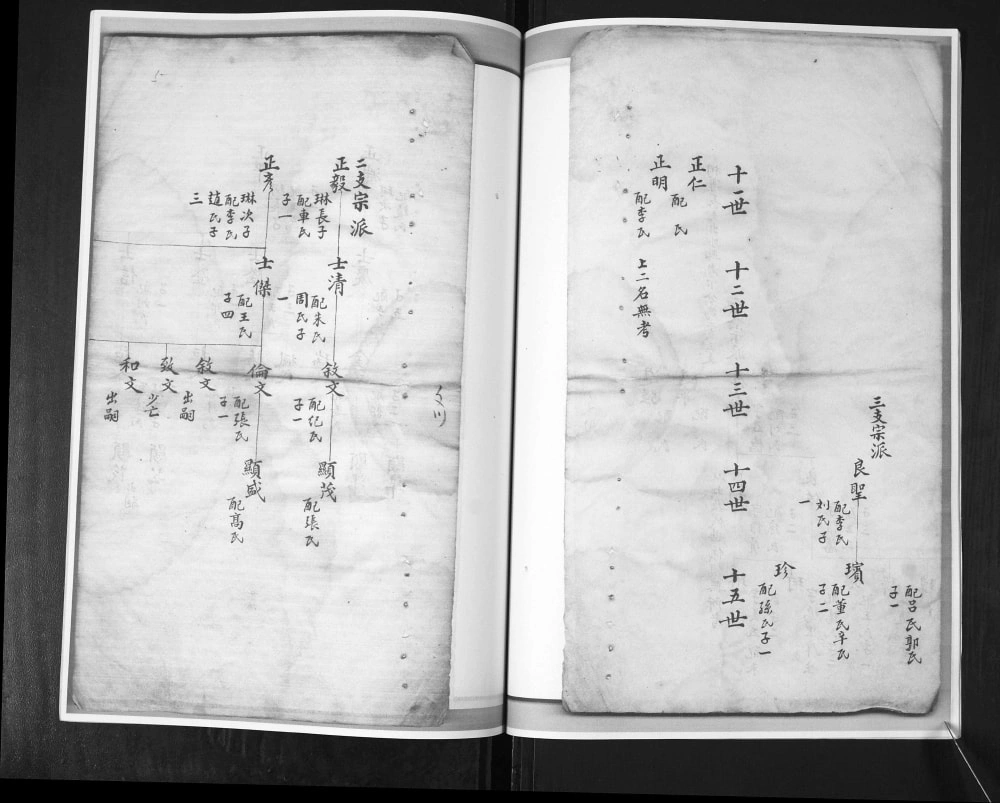 配呂氏郭氏
子一
三支宗派
良聖
配李氏
刘氏子
一
璸
配董氏辛氏
子二
珍
配孫氏子一
十一世
十二世
十三世
十四世
十五世
正仁
配 氏
正明
配李氏
上二名無考
二支宗派
正毅
琳長子
配車氏
子一
士清
配朱氏
周氏子
一
敍文
配紀氏
子一
顯茂
配張氏
正彥
琳次子
配李氏
趙氏子
三
士傑
配王氏
子四
倫文
配張氏
子一
顯盛
配高氏
敍文
出嗣
致文
少亡
和文
出嗣